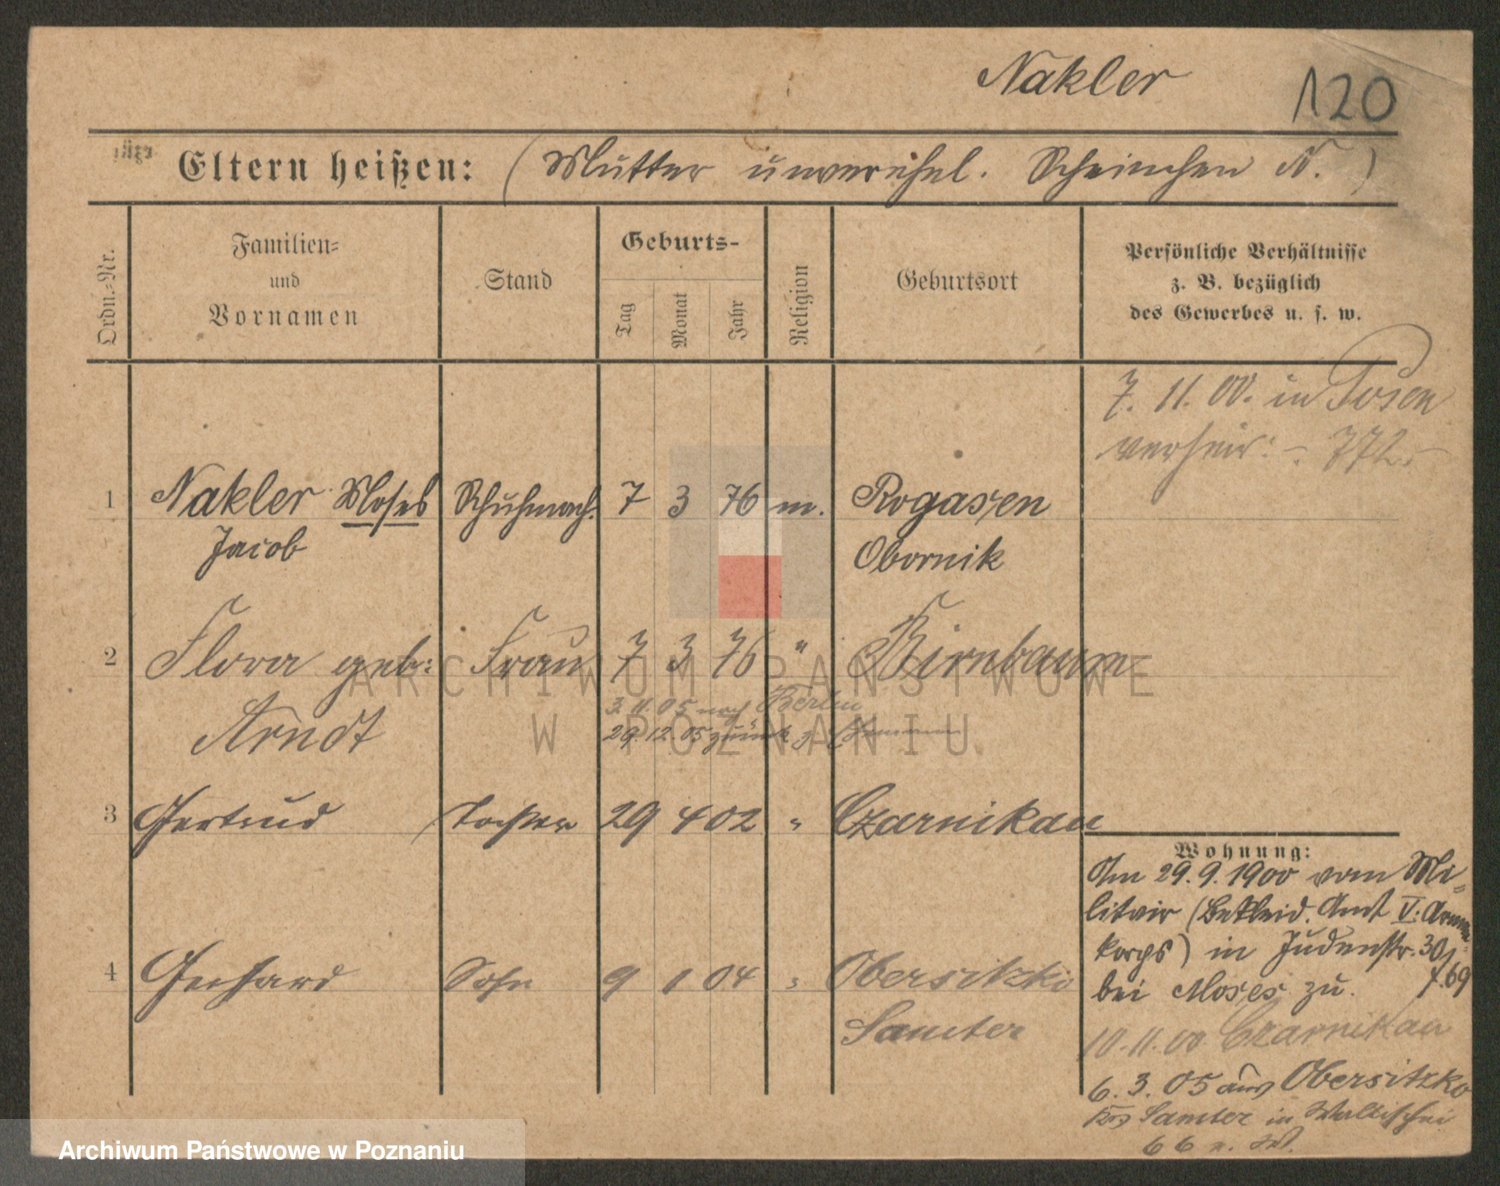 Nakler
120
Eltern heißen: (Mutter unverehel. Scheinchen N.)
Ordn.-Nr.
Familien-
und
Vornamen
Stand
Geburts-
Tag
Monat
Jahr
Religion
Geburtsort
Persönliche Verhältnisse
z. B. bezüglich
des Gewerbes u. s. w.
7. 11. 00. in Posen
verheir: - 772.-
1 Nakler Moses Schuhmach. 7 3 76 m. Rogasen
Jacob Obornik
2 Flora geb: Frau 7 3 76 " Birnbaum
Arndt
3. 11. 05 nach Berlin
29. 12. 05 zurück
3 Gertrud Tochter 29 4 02 " Czarnikau
4 Gerhard Sohn 9 1 04 " Obersitzko
Samter
Wohnung:
Am 29. 9. 1900 vom Mi-
litair (Bekleid. Amt V. Armee-
korps) in Judenstr. 30,
bei Moses zu. 7.69
10. 11. 00 Czarnikau
6. 3. 05 aus Obersitzko
Krs Samter in Wallischei
66
ARCHIWUM PAŃSTWOWE
W POZNANIU
Archiwum Państwowe w Poznaniu